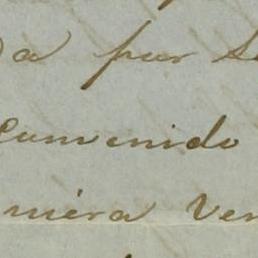 a por S
Convenido
mera Ven